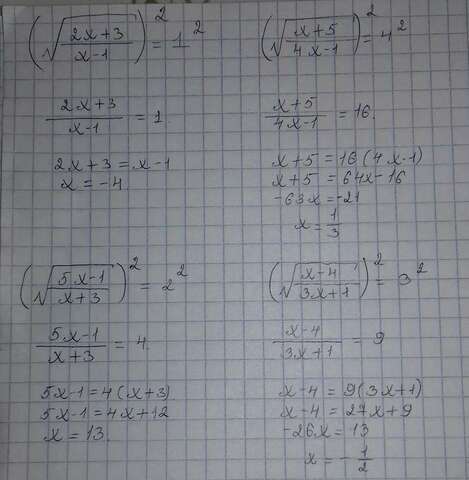 (√((2x+3)/(x-1)))² = 1²
(2x+3)/(x-1) = 1.
2x+3 = x-1
x = -4
(√((x+5)/(4x-1)))² = 4²
(x+5)/(4x-1) = 16.
x+5 = 16(4x-1)
x+5 = 64x-16
-63x = -21
x = 1/3
(√((5x-1)/(x+3)))² = 2²
(5x-1)/(x+3) = 4.
5x-1 = 4(x+3)
5x-1 = 4x+12
x = 13.
(√((x-4)/(3x+1)))² = 3²
(x-4)/(3x+1) = 9
x-4 = 9(3x+1)
x-4 = 27x+9
-26x = 13
x = -1/2